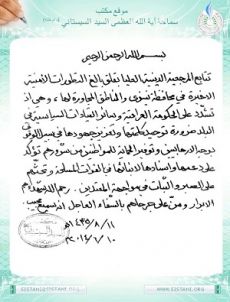 موقع مكتب
سماحة آية الله العظمى السيد السيستاني
بسم الله الرحمن الرحيم
تتابع المرجعية الدينية العليا بقلق بالغ التطورات الأمنية
الاخيرة في محافظة نينوى والمناطق المجاورة لها، وهي اذ
تشدّد على الحكومة العراقية وسائر القيادات السياسية في
البلد ضرورة توحيد كلمتها وتعزيز جهودها في سبيل الوقوف
بوجه الارهابيين وتوفير الحماية للمواطنين من شرورهم تؤكد
على دعمها واسنادها لابنائها في القوات المسلحة وتحثهم
على الصبر والثبات في مواجهة المعتدين. رحم الله شهداءهم
الابرار ومنّ على جرحاهم بالشفاء العاجل انه سميع مجيب
١١/٨/١٤٣٥هـ
١٠/٦/٢٠١٤م
SISTANI.ORG